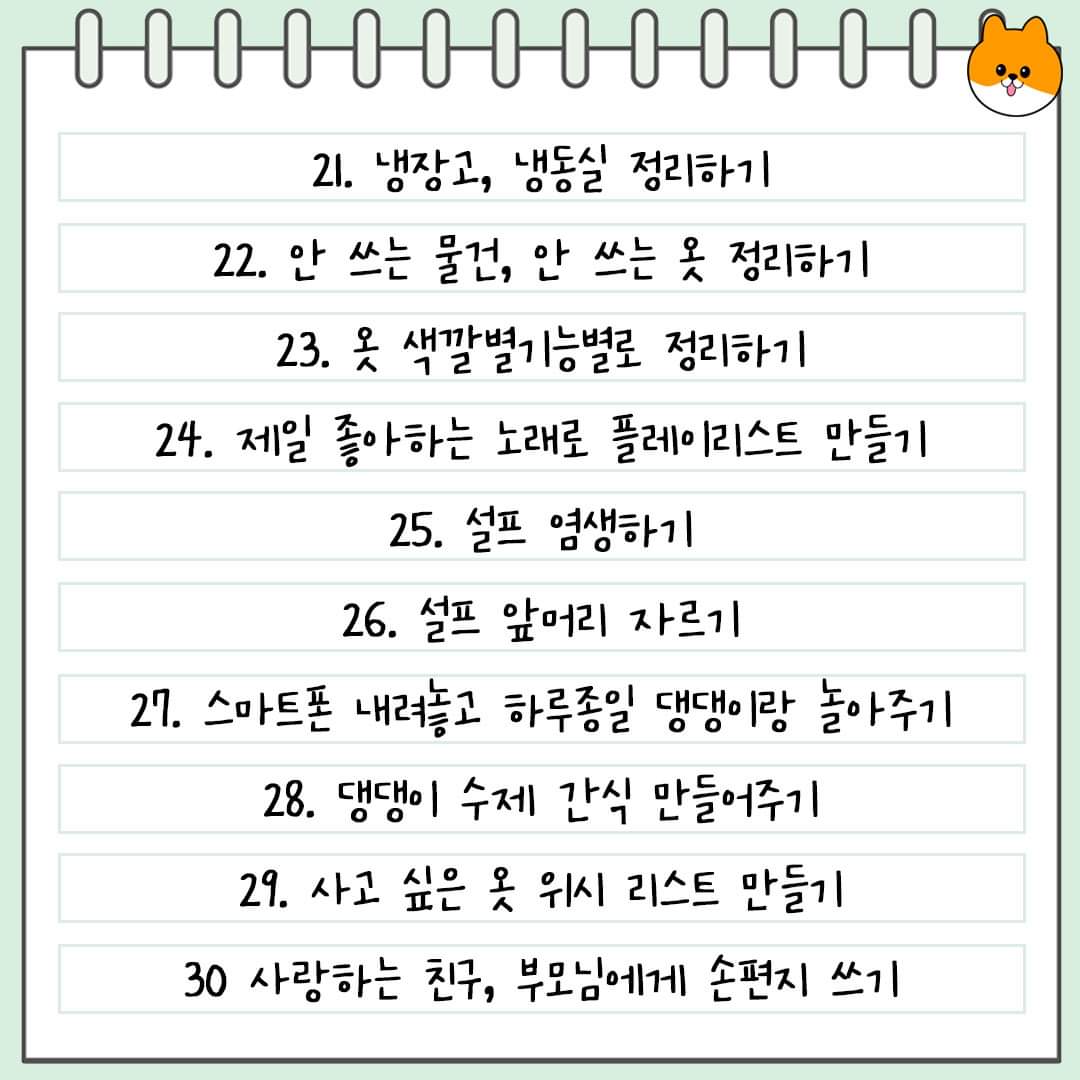 21. 냉장고, 냉동실 정리하기
22. 안 쓰는 물건, 안 쓰는 옷 정리하기
23. 옷 색깔별기능별로 정리하기
24. 제일 좋아하는 노래로 플레이리스트 만들기
25. 설프 염생하기
26. 설프 앞머리 자르기
27. 스마트폰 내려놓고 하루종일 댕댕이랑 놀아주기
28. 댕댕이 수제 간식 만들어주기
29. 사고 싶은 옷 위시 리스트 만들기
30 사랑하는 친구, 부모님에게 손편지 쓰기